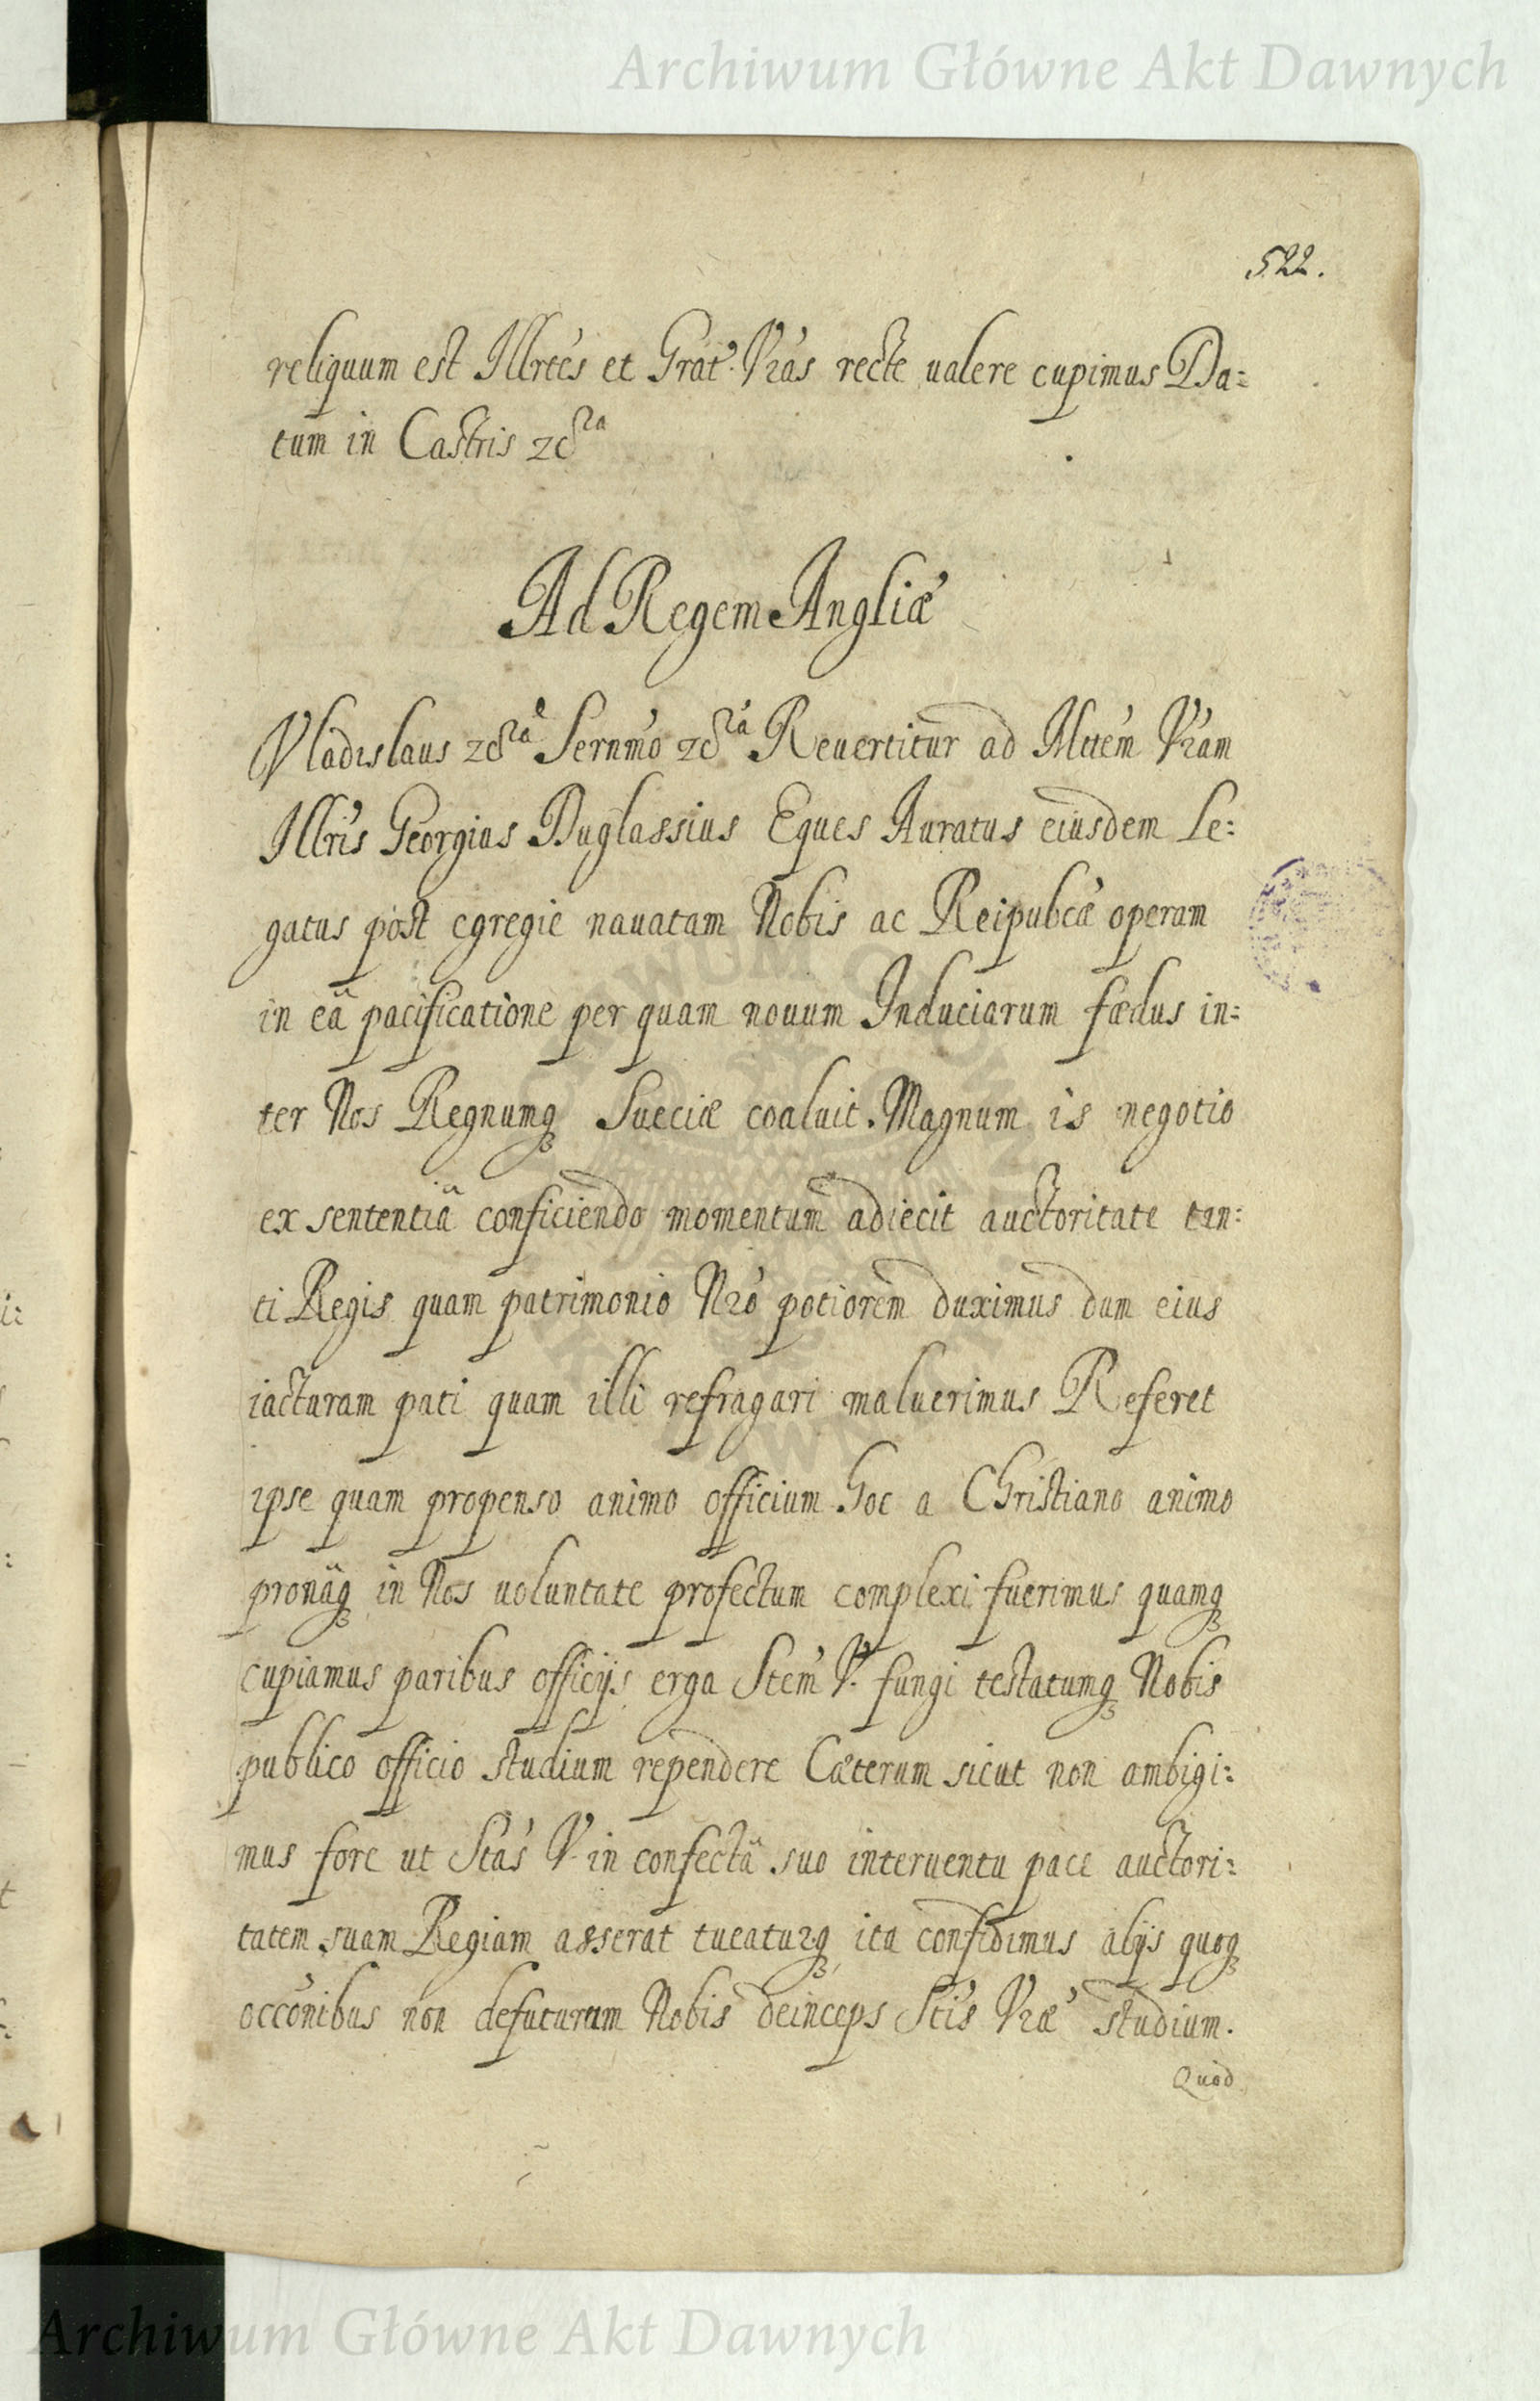 Archiwum Główne Akt Dawnych
522.
reliquum est Illrẽs et Grat. Vrãs recte ualere cupimus Da:
tum in Castris &c̃ra
Ad Regem Angliæ
Vladislaus &c̃ra Sernmo &c̃ra Reuertitur ad Mttem Vram
Illris Georgius Duglassius Eques Auratus eiusdem Le:
gatus post egregie nauatam Nobis ac Reipubcæ operam
in eâ pacificatione per quam nouum Induciarum fædus in:
ter Nos Regnumq Sueciæ coaluit. Magnum is negotio
ex sententiâ conficiendo momentum adiecit auctoritate tan:
ti Regis quam patrimonio Nro potiorem duximus dum eius
iacturam pati quam illi refragari maluerimus Referet
ipse quam propenso animo officium hoc a Christiano animo
pronâq in Nos uoluntate profectum complexi fuerimus quamq
cupiamus paribus officijs erga Stem V. fungi testatumq Nobis
publico officio studium rependere Cæterum sicut non ambigi:
mus fore ut Stas V. in confectâ suo interuentu pace auctori:
tatem suam Regiam asserat tueaturq ita confidimus alijs quoq
occonibus non defuturum Nobis deinceps Stis Vræ studium.
Quod
Archiwum Główne Akt Dawnych